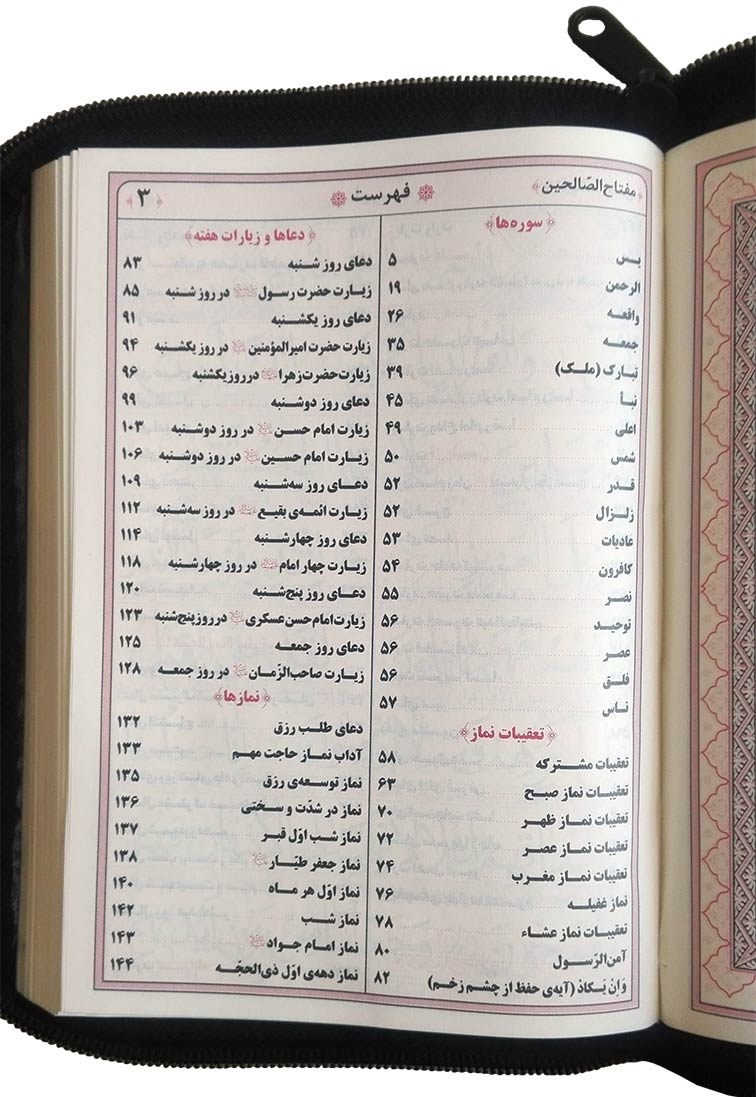 مفتاح‌الصّالحین فهرست ۳
سوره‌ها
یس ۵
الرحمن ۱۹
واقعه ۲۶
جمعه ۳۵
تبارک (ملک) ۳۹
نبأ ۴۵
اعلی ۴۹
شمس ۵۰
قدر ۵۲
زلزال ۵۲
عادیات ۵۳
کافرون ۵۴
نصر ۵۵
توحید ۵۶
عصر ۵۶
فلق ۵۶
ناس ۵۷
تعقیبات نماز
تعقیبات مشترکه ۵۸
تعقیبات نماز صبح ۶۳
تعقیبات نماز ظهر ۷۰
تعقیبات نماز عصر ۷۲
تعقیبات نماز مغرب ۷۴
نماز غفیله ۷۶
تعقیبات نماز عشاء ۷۸
آمن‌الرّسول ۸۰
وَاِنْ یَکادُ (آیه‌ی حفظ از چشم زخم) ۸۲
دعاها و زیارات هفته
دعای روز شنبه ۸۳
زیارت حضرت رسول در روز شنبه ۸۵
دعای روز یکشنبه ۹۱
زیارت حضرت امیرالمؤمنین در روز یکشنبه ۹۴
زیارت حضرت زهرا در روز یکشنبه ۹۶
دعای روز دوشنبه ۹۹
زیارت امام حسن در روز دوشنبه ۱۰۳
زیارت امام حسین در روز دوشنبه ۱۰۶
دعای روز سه‌شنبه ۱۰۹
زیارت ائمه‌ی بقیع در روز سه‌شنبه ۱۱۲
دعای روز چهارشنبه ۱۱۴
زیارت چهار امام در روز چهارشنبه ۱۱۸
دعای روز پنج‌شنبه ۱۲۰
زیارت امام حسن عسکری در روز پنج‌شنبه ۱۲۳
دعای روز جمعه ۱۲۵
زیارت صاحب‌الزّمان در روز جمعه ۱۲۸
نمازها
دعای طلب رزق ۱۳۲
آداب نماز حاجت مهم ۱۳۳
نماز توسعه‌ی رزق ۱۳۵
نماز در شدّت و سختی ۱۳۶
نماز شب اوّل قبر ۱۳۷
نماز جعفر طیّار ۱۳۸
نماز اوّل هر ماه ۱۴۰
نماز شب ۱۴۲
نماز امام جواد ۱۴۳
نماز دهه‌ی اوّل ذی‌الحجّه ۱۴۴